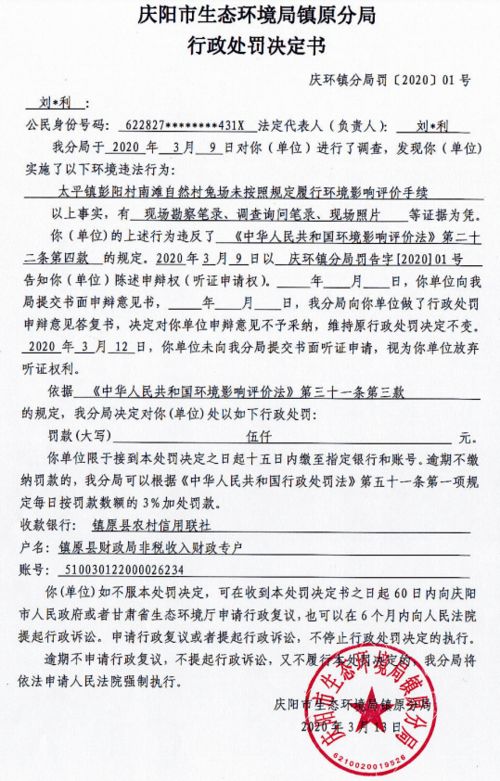 庆阳市生态环境局镇原分局
行政处罚决定书
庆环镇分局罚〔2020〕01 号
刘*利 ：
公民身份号码： 622827********431X 法定代表人（负责人）： 刘*利
我分局于 2020 年 3 月 9 日对你（单位）进行了调查，发现你（单位）
实施了以下环境违法行为：
太平镇彭阳村南滩自然村兔场未按照规定履行环境影响评价手续
以上事实，有 现场勘察笔录、调查询问笔录、现场照片 等证据为凭。
你（单位）的上述行为违反了 《中华人民共和国环境影响评价法》第二十
二条第四款 的规定。2020 年 3 月 9 日以 庆环镇分局罚告字[2020]01 号
告知你（单位）陈述申辩权（听证申请权）。 年 月 日，你单位向我
局提交书面申辩意见书， 年 月 日，我分局向你单位做了行政处罚
申辩意见答复书，决定对你单位申辩意见不予采纳，维持原行政处罚决定不变。
2020 年 3 月 12 日，你单位未向我分局提交书面听证申请，视为你单位放弃
听证权利。
依据 《中华人民共和国环境影响评价法》第三十一条第三款
的规定，我分局决定对你(单位)处以如下行政处罚：
罚款(大写) 伍仟 元。
你单位限于接到本处罚决定之日起十五日内缴至指定银行和账号。逾期不缴
纳罚款的，我分局可以根据《中华人民共和国行政处罚法》第五十一条第一项规
定每日按罚款数额的 3%加处罚款。
收款银行： 镇原县农村信用联社
户名：镇原县财政局非税收入财政专户
账号： 510030122000026234
你(单位)如不服本处罚决定，可在收到本处罚决定书之日起 60 日内向庆阳
市人民政府或者甘肃省生态环境厅申请行政复议，也可以在 6 个月内向人民法院
提起行政诉讼。申请行政复议或者提起行政诉讼，不停止行政处罚决定的执行。
逾期不申请行政复议，不提起行政诉讼，又不履行本处罚决定的，我分局将
依法申请人民法院强制执行。
庆阳市生态环境局镇原分局
2020 年 3 月 13 日
庆阳市生态环境局镇原分局
6210020019526